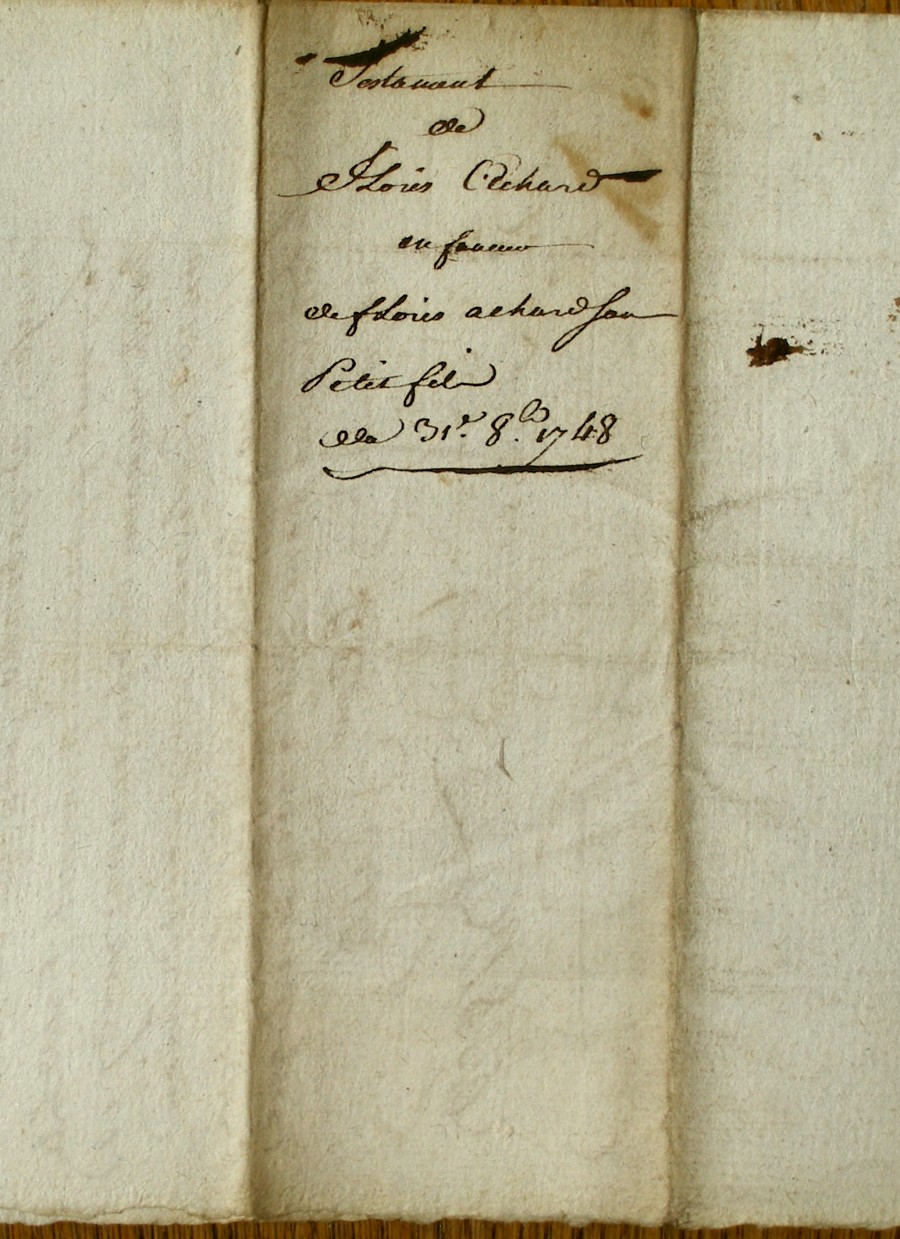 Testament
de
fLoris Achard
en faueur
de fLoris achard son
Petit fils
du 31e. 8.bre 1748